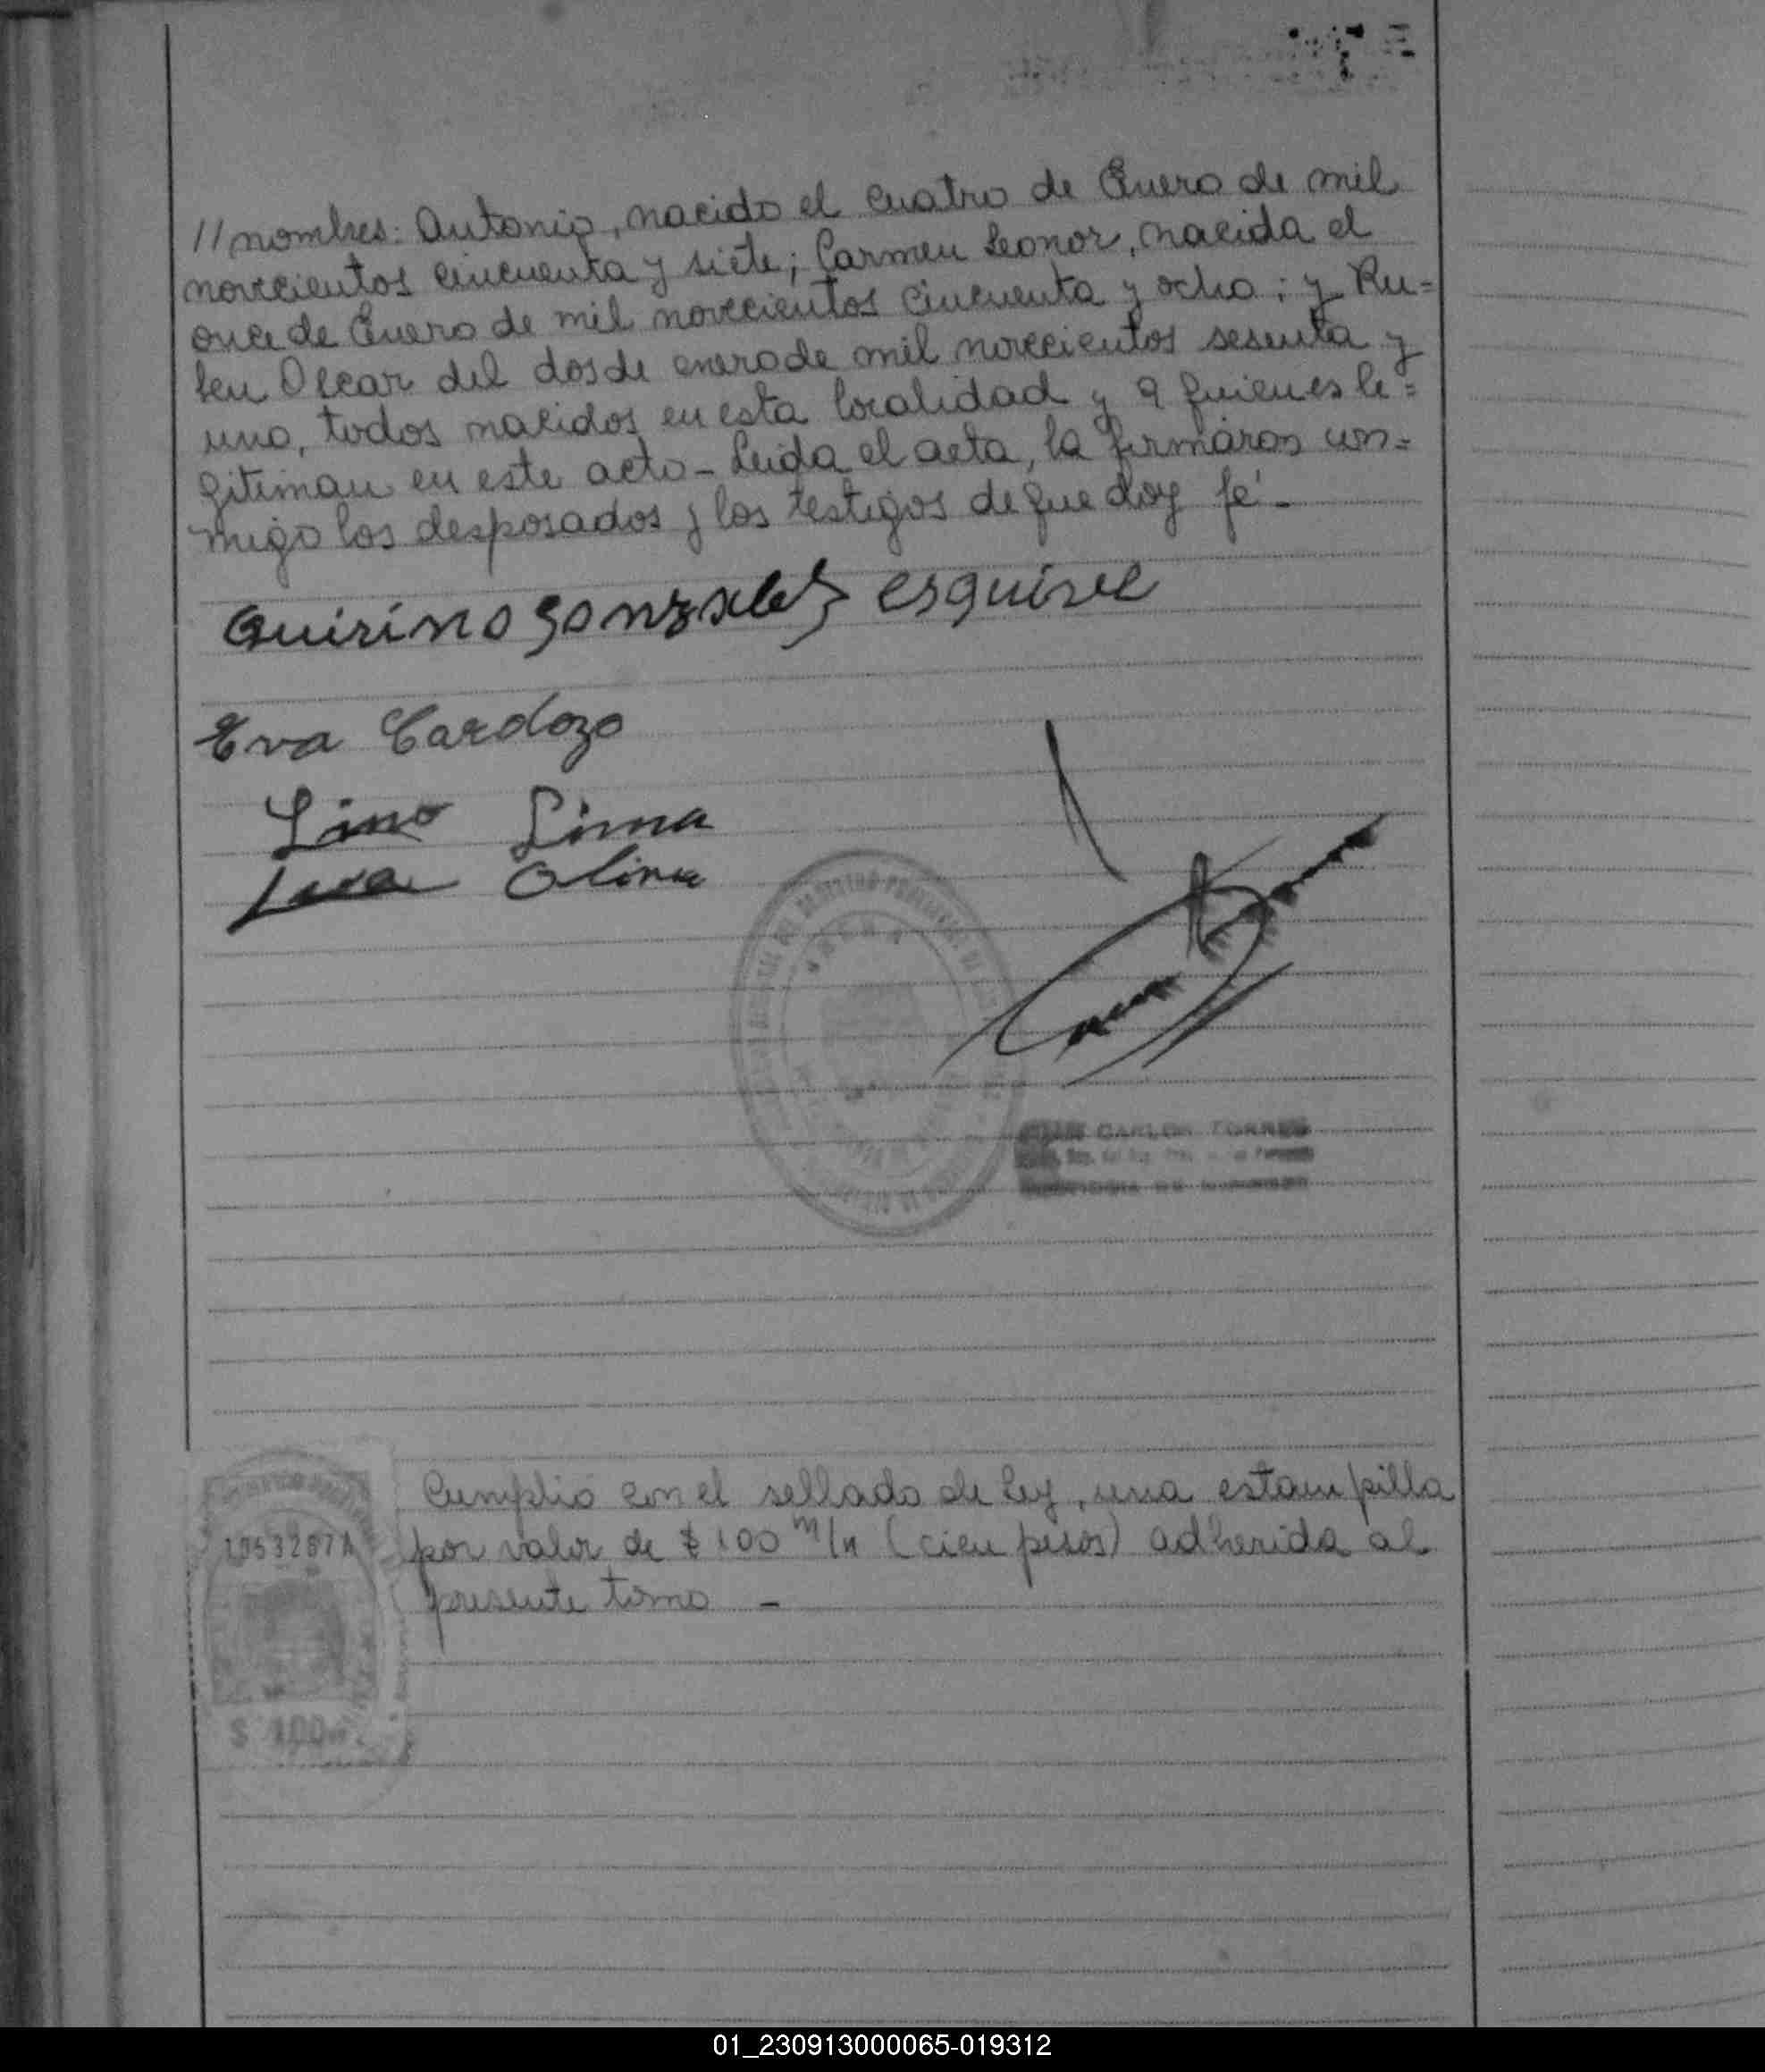 //nombres: Antonio, nacido el cuatro de Enero de mil
novecientos cincuenta y siete; Carmen Leonor, nacida el
once de Enero de mil novecientos cincuenta y ocho; y Ru=
ben Oscar del dos de enero de mil novecientos sesenta y
uno, todos nacidos en esta localidad y a quienes le=
gitiman en este acto - Leida el acta, la firmaron con=
migo los desposados y los testigos de que doy fé -
Quirino gonzalez esquivel
Eva Cardozo
Lino Lima
CARLOS TORRES
Cumplio con el sellado de Ley, una estampilla
por valor de $ 100 m/n (cien pesos) adherida al
presente tomo -
1053287A
$ 100
01_230913000065-019312